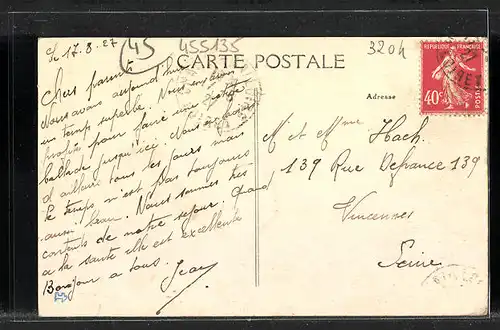 Le 17.8.27
45
455135
3204
CARTE POSTALE
Adresse
RÉPUBLIQUE FRANÇAISE
40c
POSTES
Chers parents
Nous avons aujourd'hui
un temps superbe. Nous en avons
profité pour faire une petite
ballade jusqu'ici. Nous
d'ailleurs tous les jours mais
le temps n'est pas toujours
aussi beau. Nous sommes très
contents de notre séjour. Quand
à la santé elle est excellente
Bonjour à tous. Jean
M et Mme Hach.
139 Rue Defrance 139
Vincennes
Seine